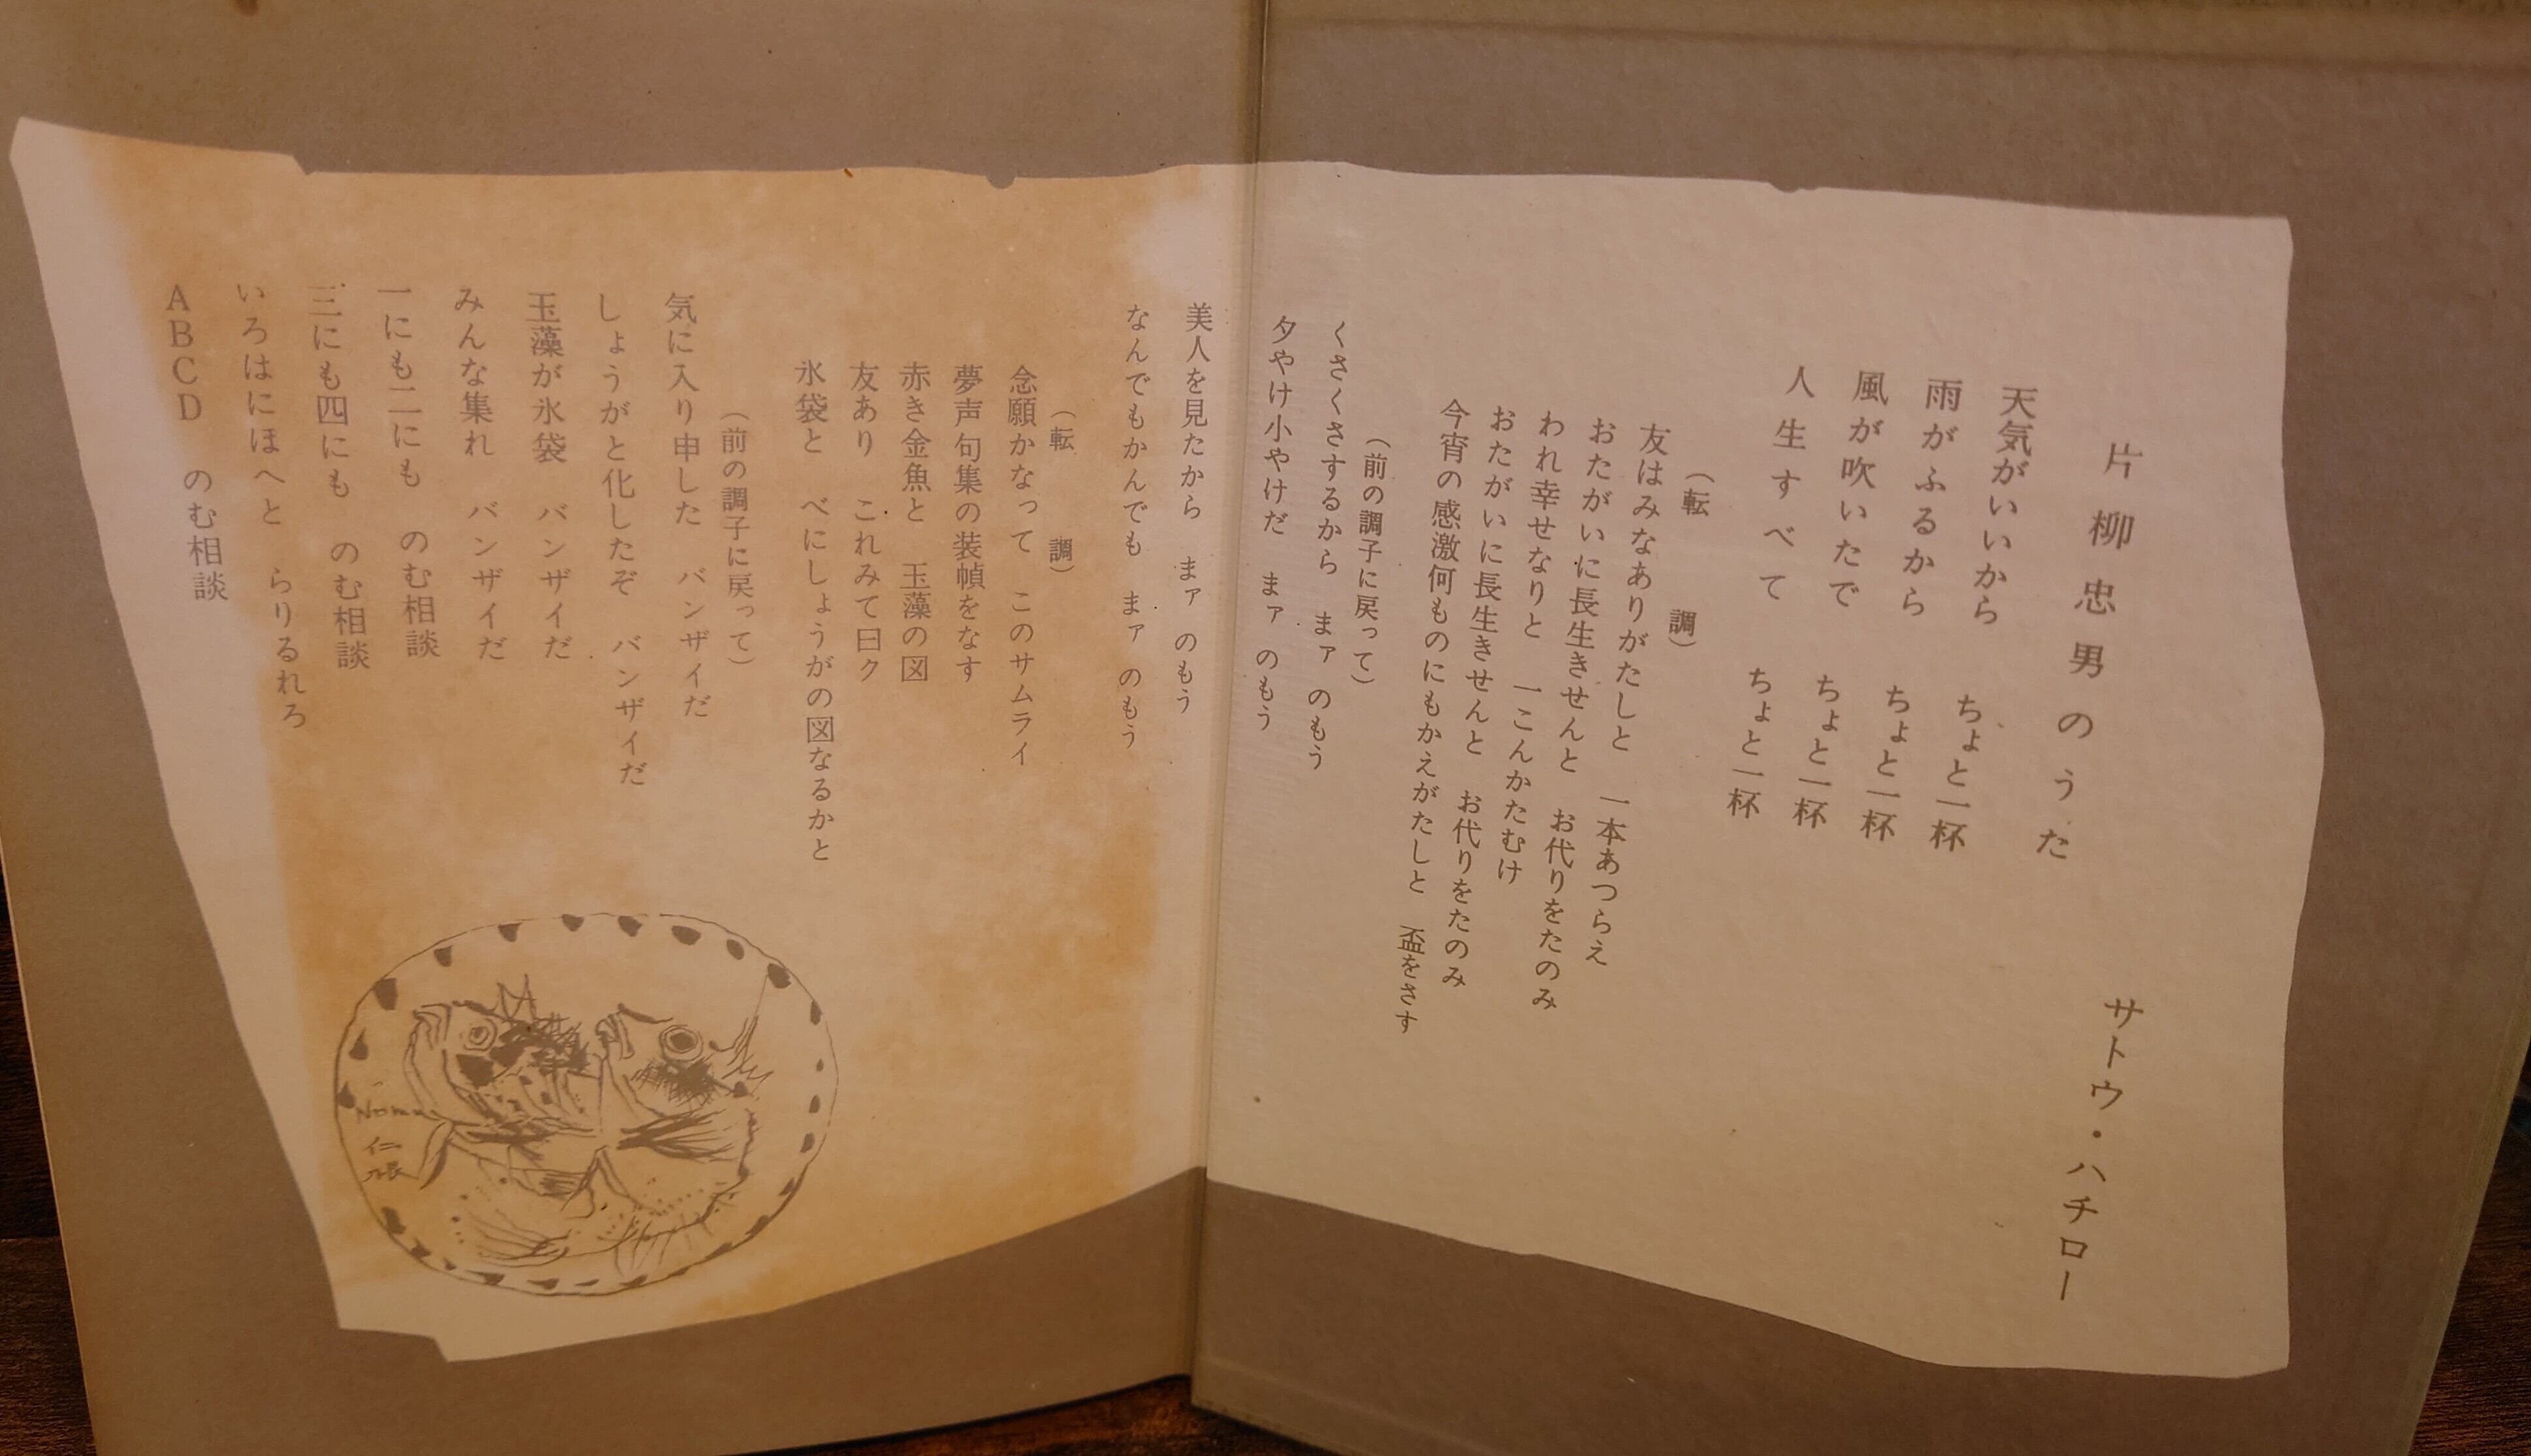 片柳忠男のうた　サトウ・ハチロー
天気がいいから　ちょと一杯
雨がふるから　ちょと一杯
風が吹いたで　ちょと一杯
人生すべて　ちょと一杯
（転　調）
友はみなありがたしと　一本あつらえ
おたがいに長生きせんと　お代りをたのみ
われ幸せなりと　一こんかたむけ
おたがいに長生きせんと　お代りをたのみ
今宵の感激何ものにもかえがたしと　盃をさす
（前の調子に戻って）
くさくさするから　まァ　のもう
夕やけ小やけだ　まァ　のもう
美人を見たから　まァ　のもう
なんでもかんでも　まァ　のもう
（転　調）
念願かなって　このサムライ
夢声句集の装幀をなす
赤き金魚と　玉藻の図
友あり　これみて曰ク
氷袋と　べにしょうがの図なるかと
（前の調子に戻って）
気に入り申した　バンザイだ
しょうがと化したぞ　バンザイだ
玉藻が氷袋　バンザイだ
みんな集れ　バンザイだ
一にも二にも　のむ相談
三にも四にも　のむ相談
いろはにほへと　らりるれろ
ABCD　のむ相談